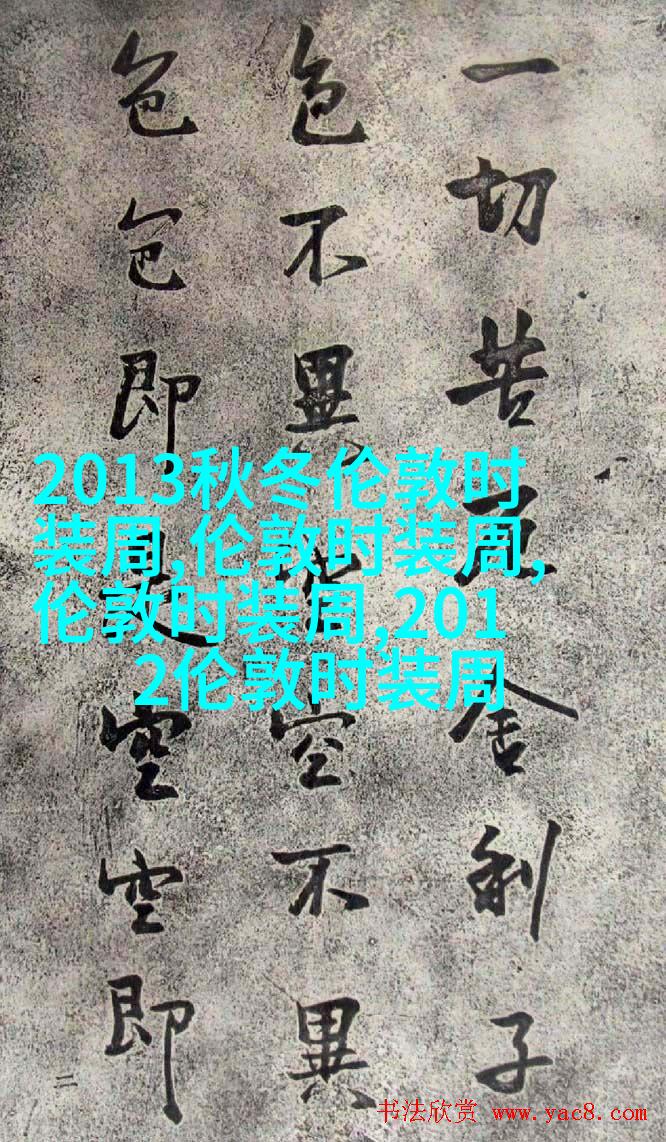 一切苦厄舍利子
色不異空空不異
色色即是空空即
二
2013秋冬伦敦时
装周,伦敦时装周,
伦敦时装周,201
2伦敦时装周
书法欣赏 www.yac8.com